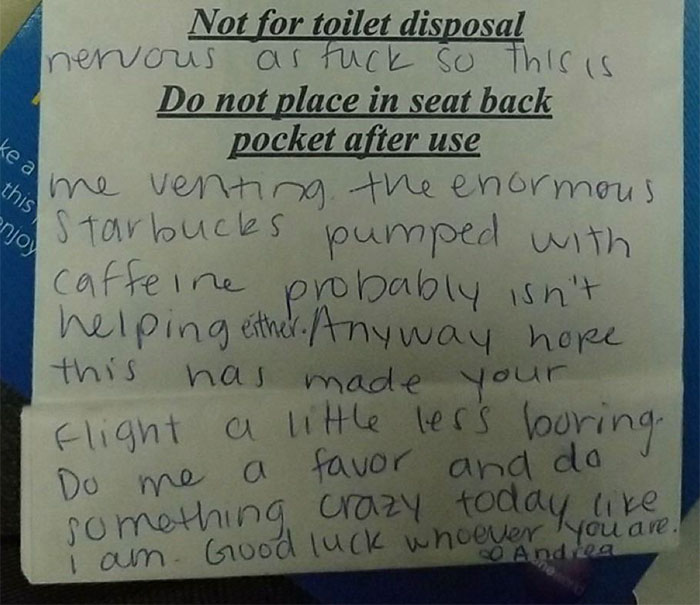 Not for toilet disposal
nervous as fuck so this is
Do not place in seat back
pocket after use
ke a
this
enjoy
me venting. the enormous
Starbucks pumped with
caffeine probably isn't
helping either. Anyway hope
this has made your
flight a little less boring.
Do me a favor and do
something crazy today like
i am. Good luck whoever you are.
Andrea